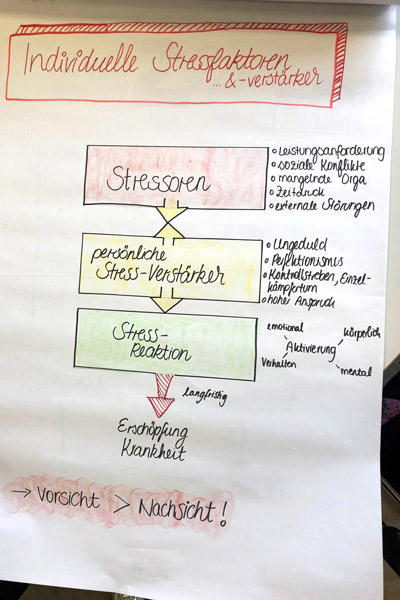 Individuelle Stressfaktoren
... & -verstärker
Stressoren
o Leistungsanforderung
o soziale Konflikte
o mangelnde Orga
o Zeitdruck
o externale Störungen
persönliche
Stress-Verstärker
o Ungeduld
o Perfektionismus
o Kontrollstreben, Einzel-
kämpfertum
o hoher Anspruch
Stress-
Reaktion
emotional
körperlich
Aktivierung
Verhalten
mental
langfristig
Erschöpfung
Krankheit
→ Vorsicht > Nachsicht!